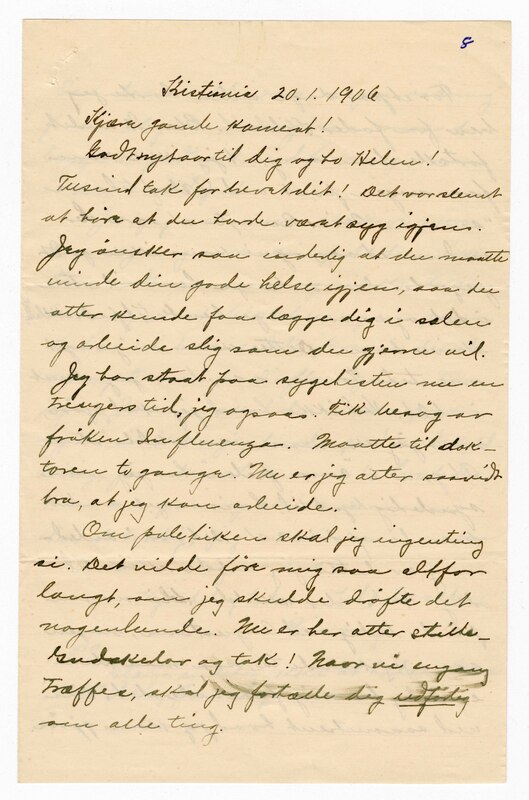 8
Kristiania 20.1.1906
Kjære gamle kamerat!
Godt nytaar til dig og to Helen!
Tusind tak for brevet dit! Det var slemt
at höre at du havde været syg igjen.
Jeg önsker saa inderlig at du maatte
vinde din gode helse igjen, saa du
atter kunde faa lægge dig i selen
og arbeide slig som du gjerne vil.
Jeg har staat paa sygelisten nu en
trengere tid, jeg ogsaa. Fik besög av
fröken Influenza. Maatte til dok-
toren to gange. Nu er jeg atter saavidt
bra, at jeg kan arbeide.
Om politiken skal jeg ingenting
si. Det vilde före mig saa altfor
langt, om jeg skulde dröfte det
nogenlunde. Nu er her atter stille –
Gudskelov og tak! Naar vi engang
træffes, skal jeg fortælle dig udförlig
om alle ting.